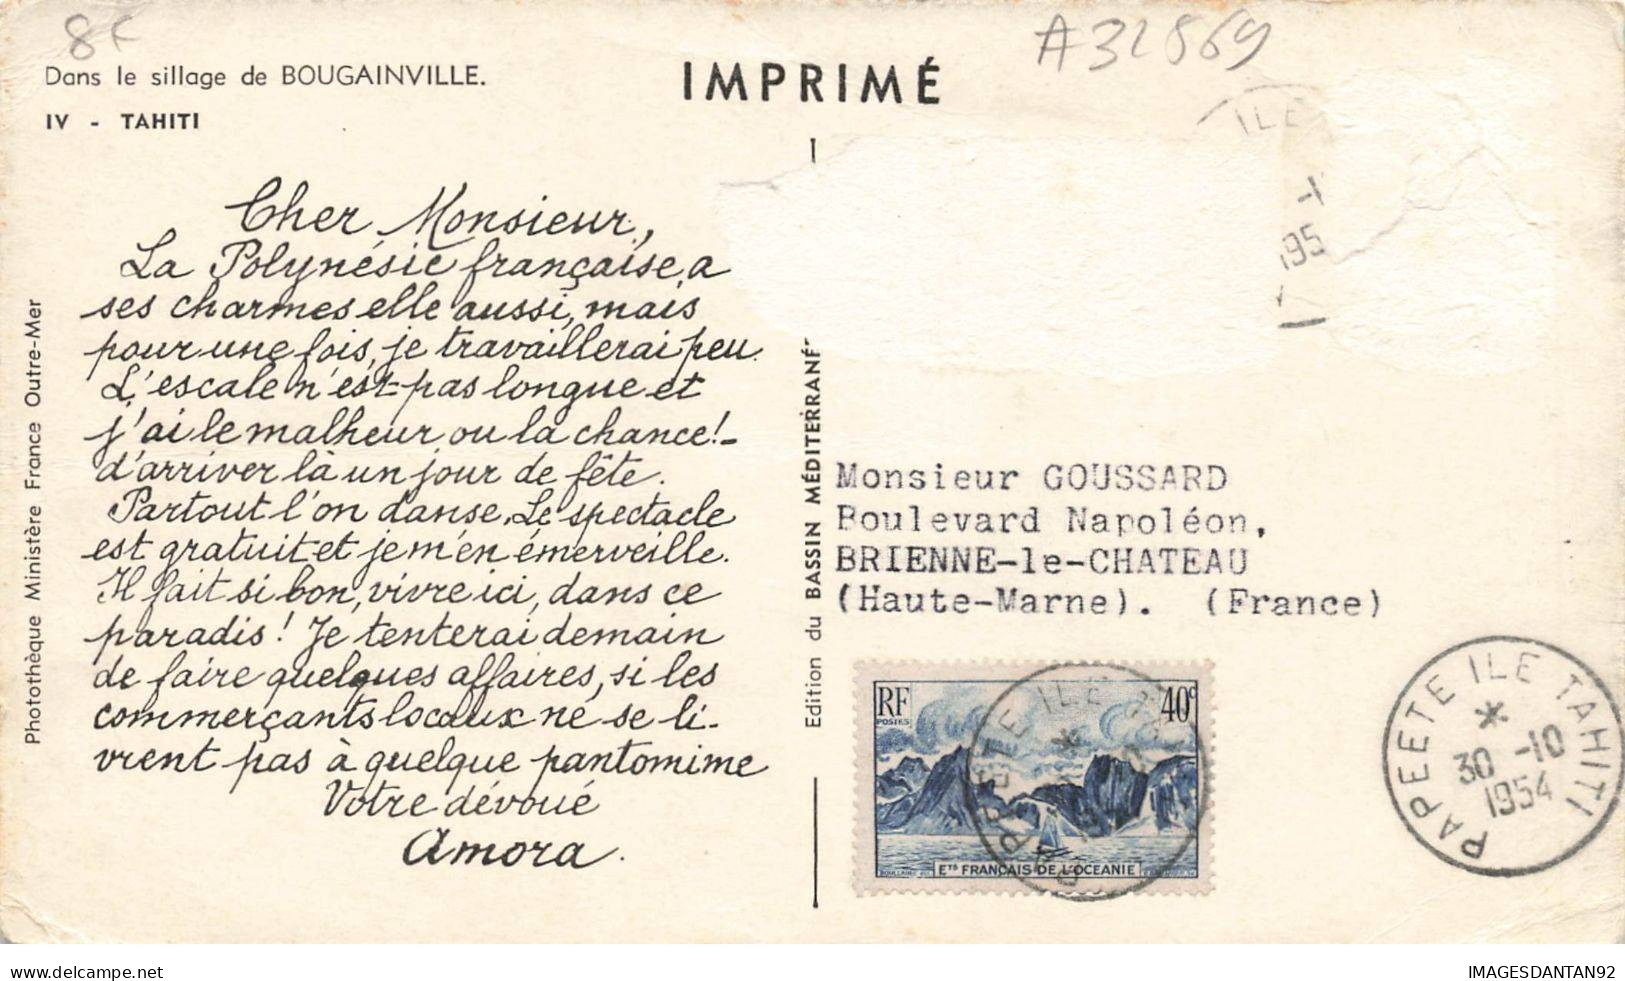 8F
A32869
Dans le sillage de BOUGAINVILLE.
IV - TAHITI
IMPRIMÉ
ILE
195
Cher Monsieur,
La Polynésie française a
ses charmes elle aussi, mais
pour une fois, je travaillerai peu.
L'escale n'est pas longue et
j'ai le malheur ou la chance! -
d'arriver là un jour de fête.
Partout l'on danse. Le spectacle
est gratuit et je m'en émerveille.
Il fait si bon, vivre ici, dans ce
paradis! Je tenterai demain
de faire quelques affaires, si les
commerçants locaux ne se li-
vrent pas à quelque pantomime
Votre dévoué
Amora.
Photothèque Ministère France Outre-Mer
Edition du BASSIN MÉDITERRANÉ
Monsieur GOUSSARD
Boulevard Napoléon,
BRIENNE-le-CHATEAU
(Haute-Marne). (France)
RF
POSTES
40c
ETS FRANÇAIS DE L'OCEANIE
PAPEETE ILE TAHITI
30 -10
1954
delcampe.net
IMAGESDANTAN92